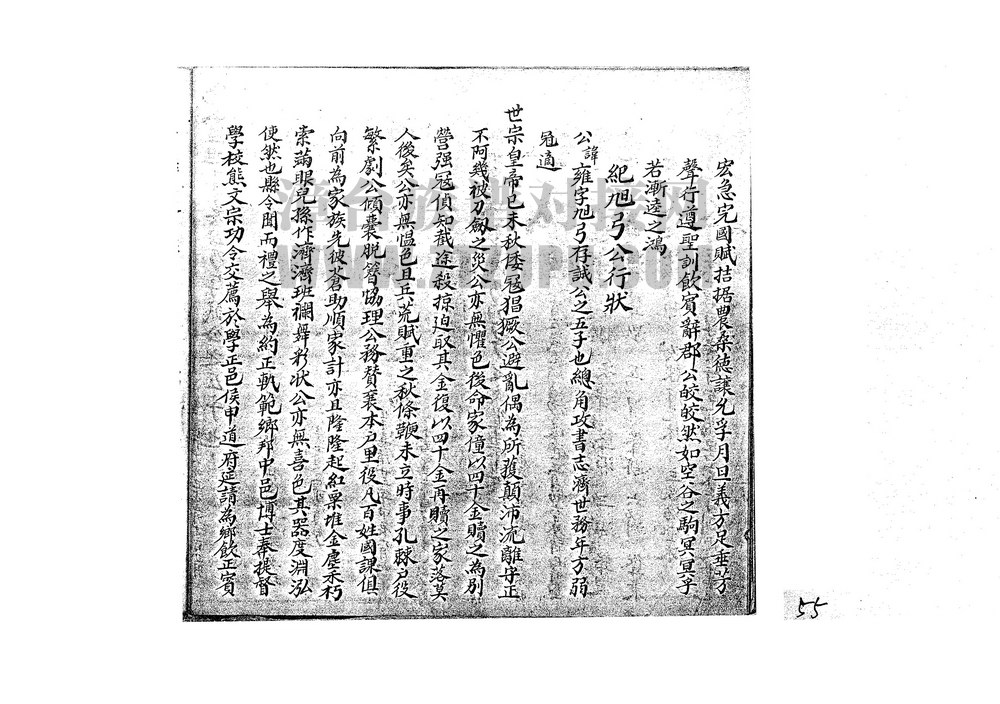 宏急完國賦拮据農桑德讓允孚月旦義方足垂芳
聲行遵聖訓飲賓辭郡公皎皎然如空谷之駒冥冥乎
若漸逵之鴻
紀旭弓公行狀
公諱雍字旭弓存誠公之五子也總角攻書志濟世務年方弱
冠適
世宗皇帝己未秋倭寇猖獗公避亂偶為所獲顛沛流離守正
不阿幾被刀劍之災公亦無懼色後命家僮以四十金贖之為別
營强冦偵知截途殺掠迫取其金復以四十金再贖之家落莫
人後矣公亦無愠色且兵荒賦重之秋條鞭未立時事孔棘户役
繁劇公傾囊脫簪恊理公務賛襄本户里役凡百姓國課俱
向前為家族先彼蒼助順家計亦且隆隆起紅粟堆金塵未朽
索滿眼兒孫作濟濟班襴舞彩狀公亦無喜色其器度淵泓
使然也縣令聞而禮之舉為約正軌範鄉邦中邑博士奉提督
學校熊文宗功令交薦於學正邑侯申道府延請為鄉飲正賓
55